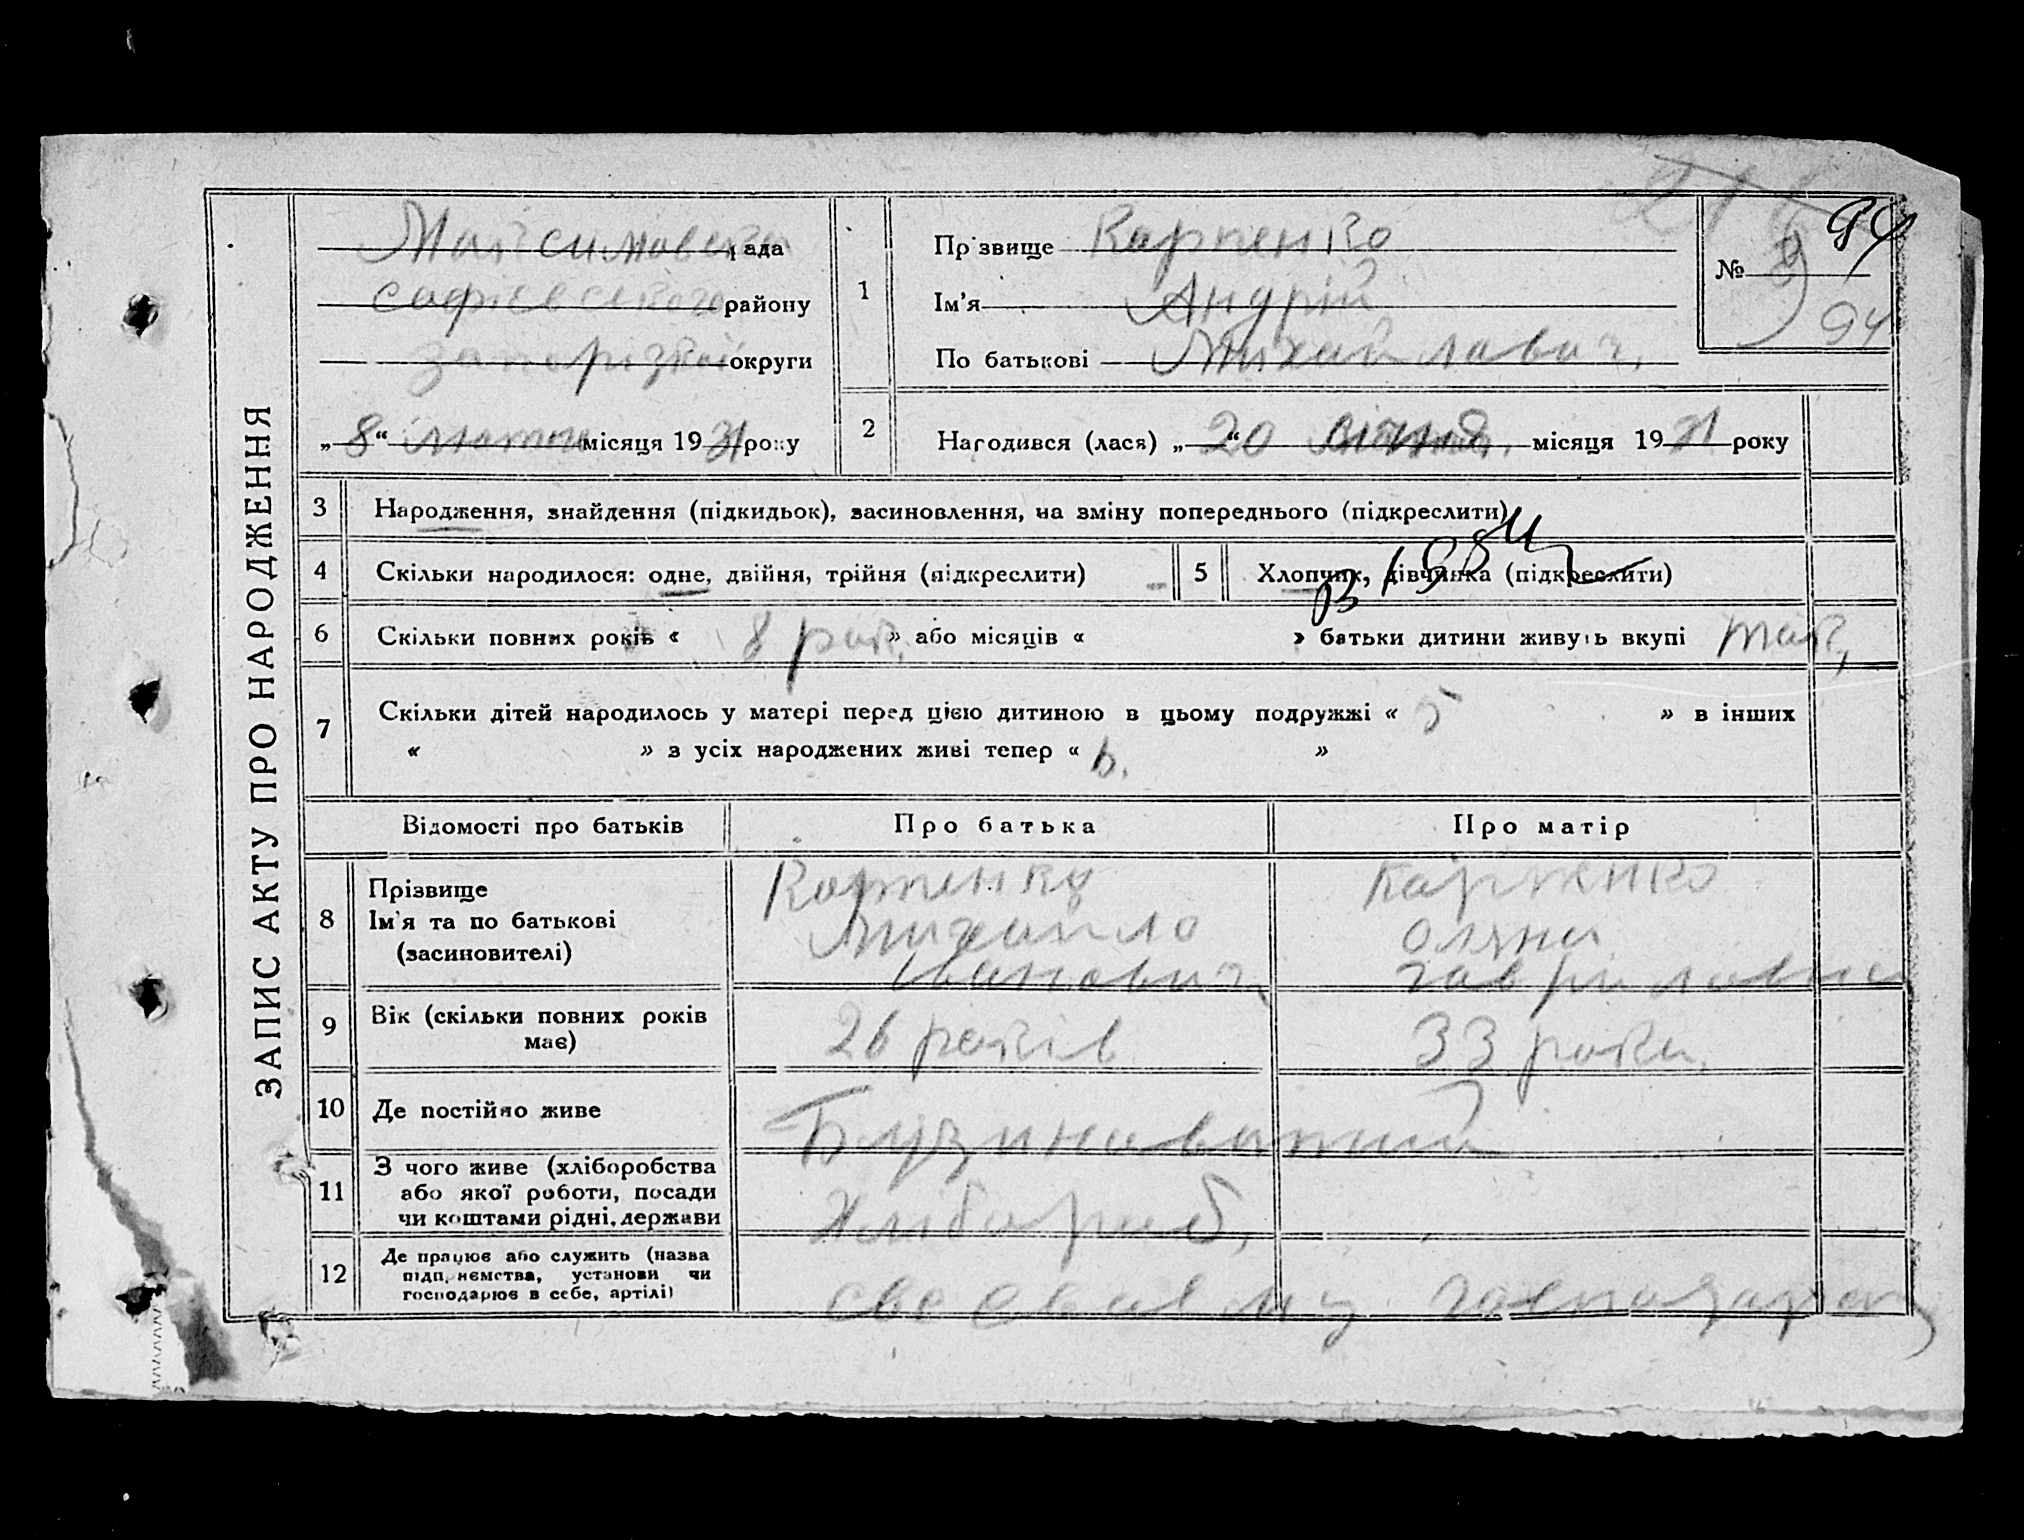 ЗАПИС АКТУ ПРО НАРОДЖЕННЯ
рада
Софієвського району
Запорізкої округи
„8“ лютого місяця 1931 року
1
Прізвище Карпенко
Ім'я Андрій
По батькові Михайлович,
№ 9
94
94
2
Народився (лася) „20“ січня, місяця 1931 року
3 Народження, знайдення (підкидьок), засиновлення, на зміну попереднього (підкреслити)
4 Скільки народилося: одне, двійня, трійня (підкреслити)
5 Хлопчик, дівчинка (підкреслити)
6 Скільки повних років « 8 рок. » або місяців « » батьки дитини живуть вкупі так,
7 Скільки дітей народилось у матері перед цією дитиною в цьому подружжі « 5 » в інших
« » з усіх народжених живі тепер « 6. »
Відомості про батьків Про батька Про матір
8 Прізвище
Ім'я та по батькові
(засиновителі)
Карпенко
Михайло
Іванович
Карпенко
Оляна
Гавриловна
9 Вік (скільки повних років
має)
26 років 33 роки.
10 Де постійно живе
11 З чого живе (хліборобства
або якої роботи, посади
чи коштами рідні, держави
Хлібороб,
12 Де працює або служить (назва
підприємства, установи чи
господарює в себе, артілі)